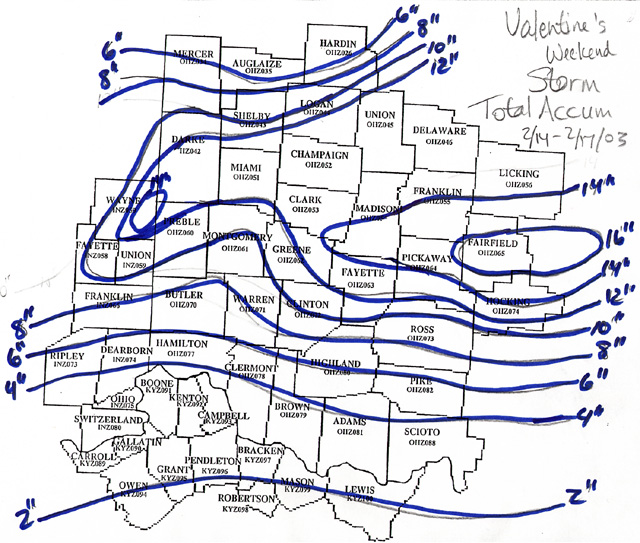 Valentine's
Weekend
Storm
Total Accum
2/14-2/17/03
6"
8"
10"
12"
6"
8"
HARDIN
OHZ026
MERCER
OHZ034
AUGLAIZE
OHZ035
LOGAN
SHELBY
OHZ043
UNION
OHZ045
DELAWARE
OHZ046
DARKE
OHZ042
CHAMPAIGN
OHZ052
MIAMI
OHZ051
LICKING
OHZ056
FRANKLIN
OHZ055
14"
14"
WAYNE
CLARK
OHZ053
MADISON
PREBLE
OHZ060
MONTGOMERY
OHZ061
GREENE
16"
FAIRFIELD
OHZ065
FAYETTE
INZ058
UNION
INZ059
PICKAWAY
OHZ064
FAYETTE
OHZ063
14"
FRANKLIN
BUTLER
OHZ070
WARREN
OHZ071
CLINTON
HOCKING
OHZ074
12"
ROSS
OHZ073
10"
8"
8"
HAMILTON
OHZ077
DEARBORN
INZ074
RIPLEY
INZ073
6"
6"
CLERMONT
OHZ078
HIGHLAND
PIKE
OHZ082
4"
4"
BOONE
KYZ091
KENTON
CAMPBELL
OHIO
INZ075
BROWN
OHZ079
ADAMS
OHZ081
SCIOTO
OHZ088
SWITZERLAND
INZ080
GALLATIN
KYZ090
CARROLL
KYZ089
GRANT
KYZ095
PENDLETON
KYZ096
BRACKEN
KYZ097
OWEN
KYZ094
MASON
KYZ099
LEWIS
ROBERTSON
KYZ098
2"
2"